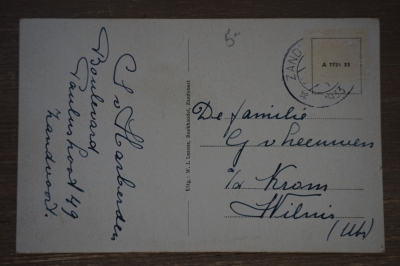 5-
C v Harberden
Boulevard
Paulus Loot 49
Zandvoort.
Uitg.: W. J. Lussen, Boekhandel, Zandvoort
ZAND
A 7721 33
De familie
G v Leeuwen
p/a Krom
Wilnis
(Utr)